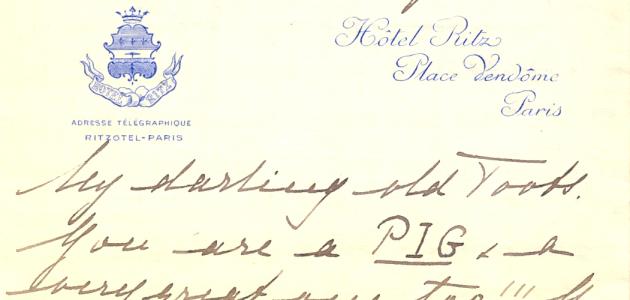 HOTEL RITZ
ADRESSE TÉLÉGRAPHIQUE
RITZOTEL-PARIS
Hôtel Ritz
Place Vendôme
Paris
My darling old Toots.
You are a PIG & a
very great one too!!!